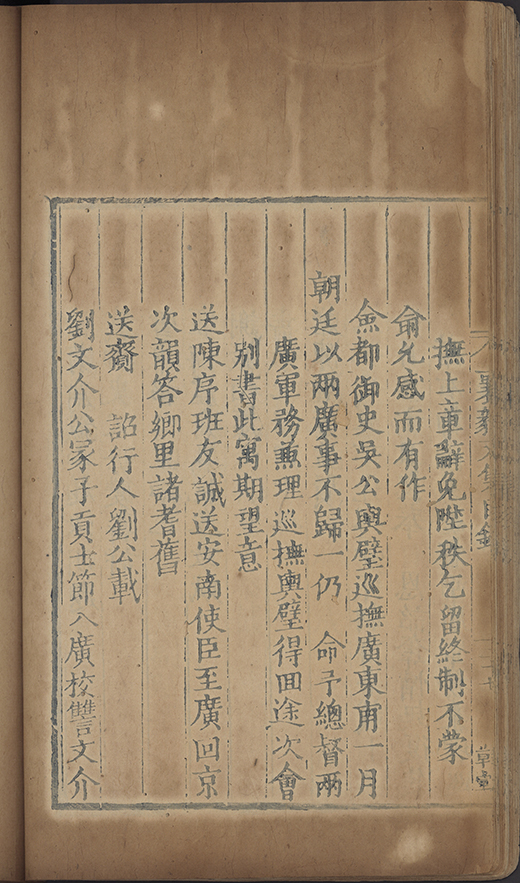 襄毅文集目錄
撫上章辭免陞秩乞留終制不蒙
俞允感而有作
僉都御史吳公輿璧巡撫廣東甫一月
朝廷以兩廣事不歸一仍 命予總督兩
廣軍務兼理巡撫輿璧得囬途次會
别書此寓期望意
送陳序班友誠送安南使臣至廣回京
次韻答鄉里諸耆舊
送齎 詔行人劉公載
劉文介公冢子貢士節入廣校讐文介